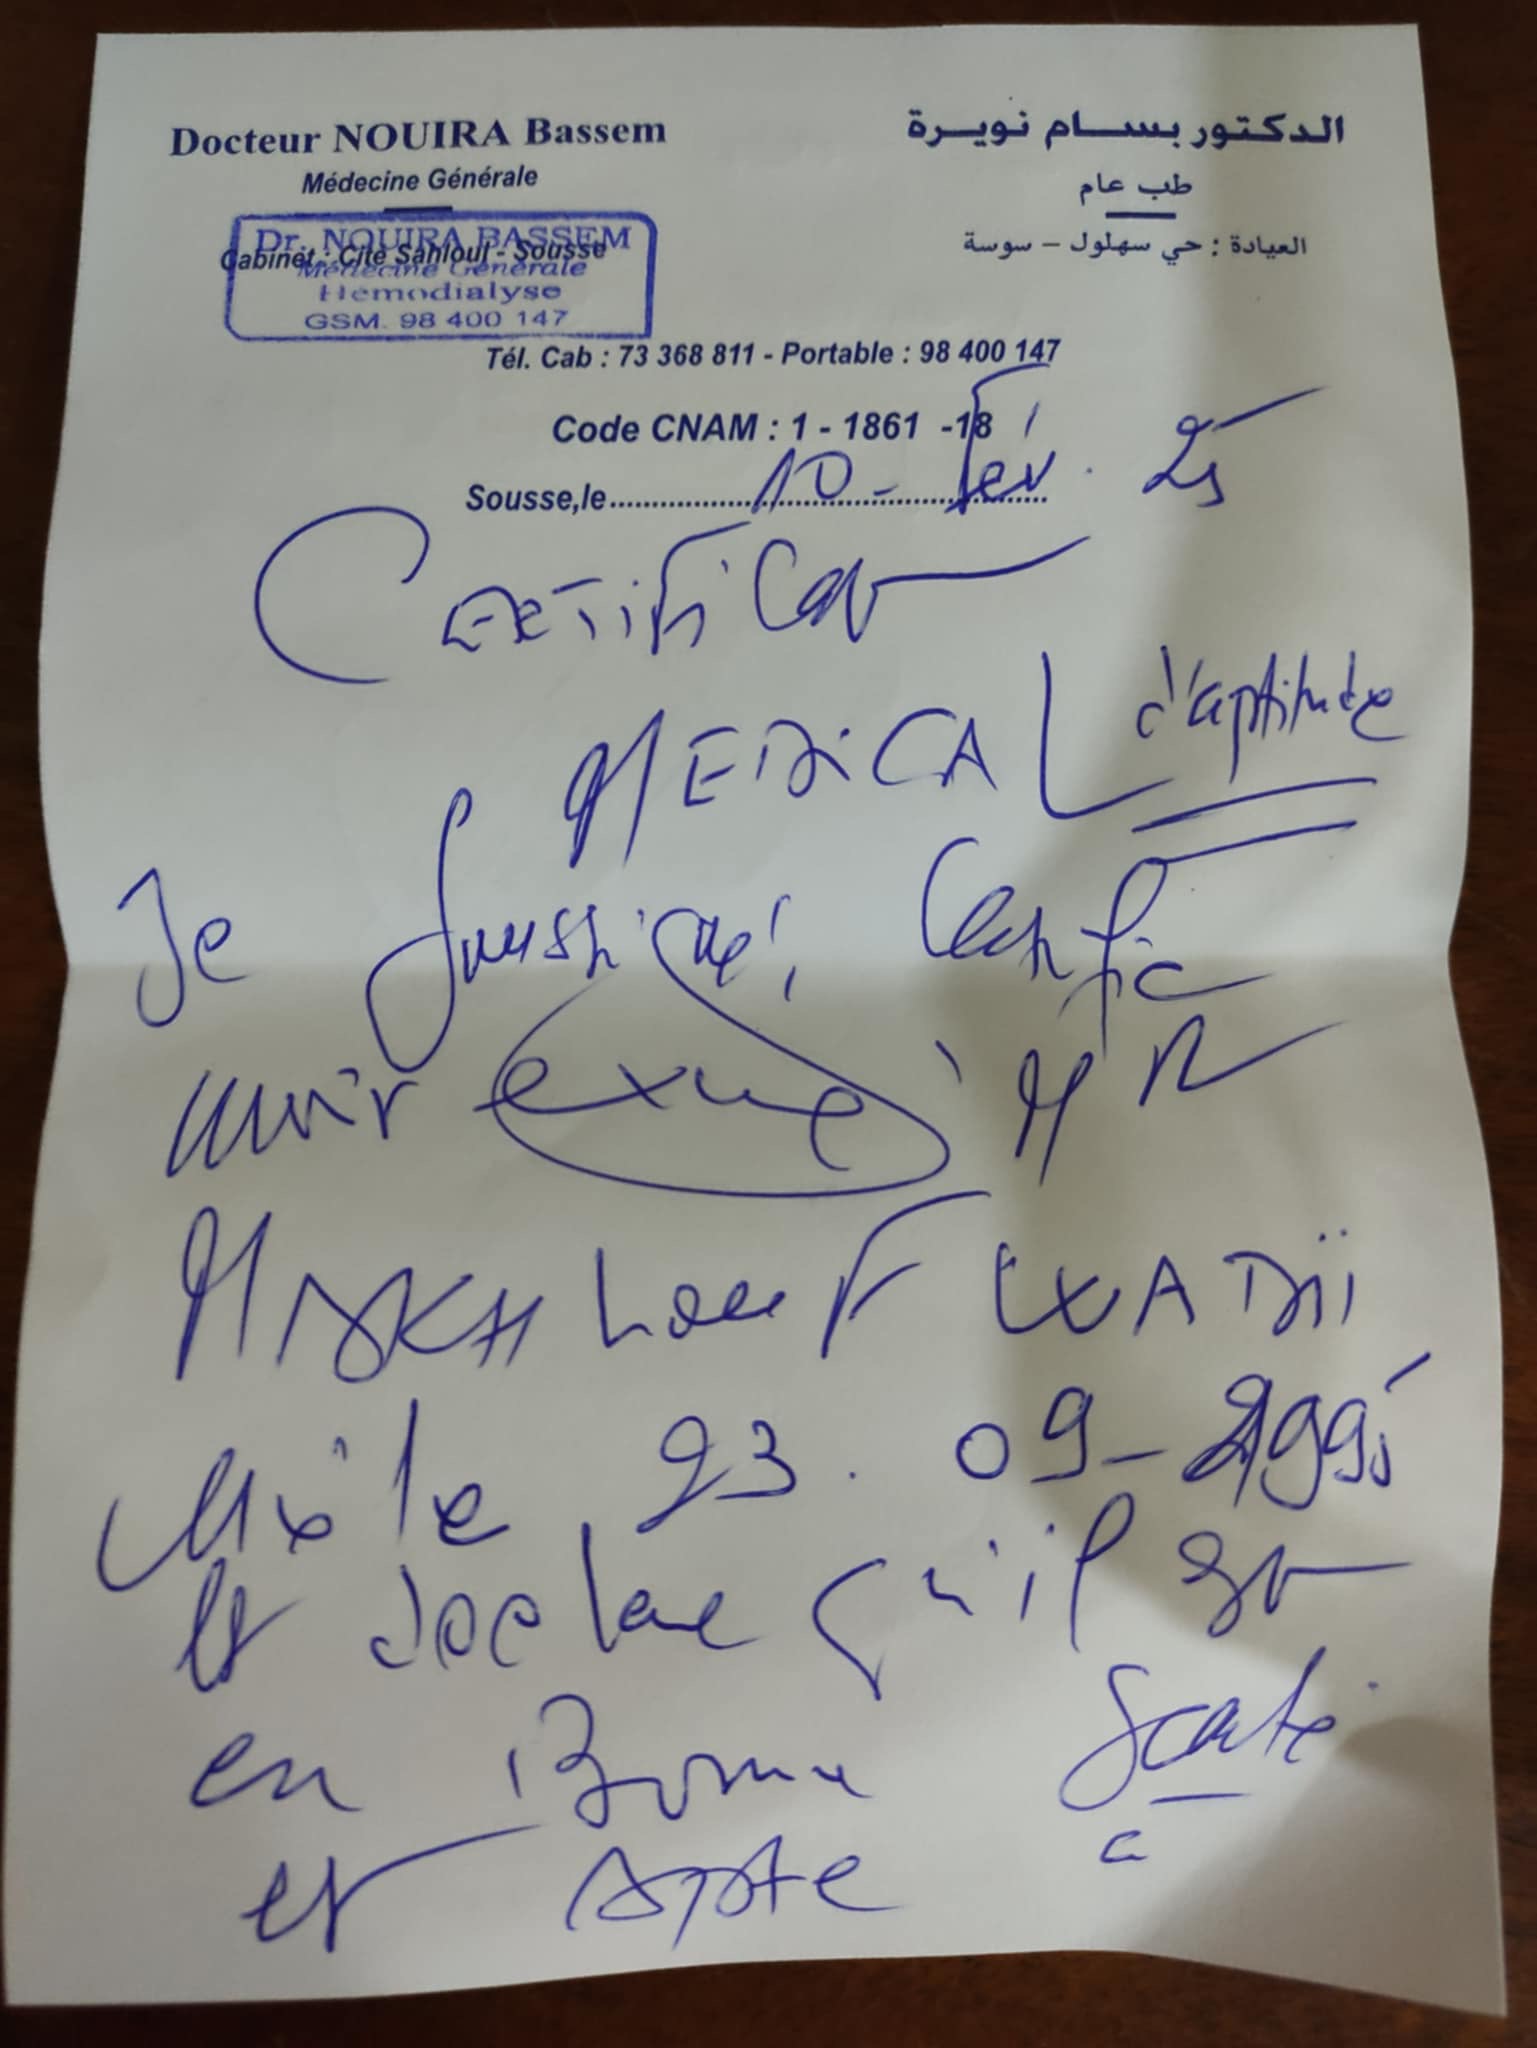 Docteur NOUIRA Bassem
Médecine Générale
الدكتور بسام نويرة
طب عام
العيادة : حي سهلول – سوسة
Cabinet : Cité Sahloul - Sousse
Dr. NOUIRA BASSEM
Médecine Générale
Hémodialyse
GSM. 98 400 147
Tél. Cab : 73 368 811 - Portable : 98 400 147
Code CNAM : 1 - 1861 -18
Sousse,le 10 - fev. 25
Certificat
MEDICAL d'aptitude
Je soussigné, Certifie
avoir exané MR
MAKHLOUF WADII
Né le 23. 09-1995
et declare qu'il est
en Bonne Santé
et Apte a